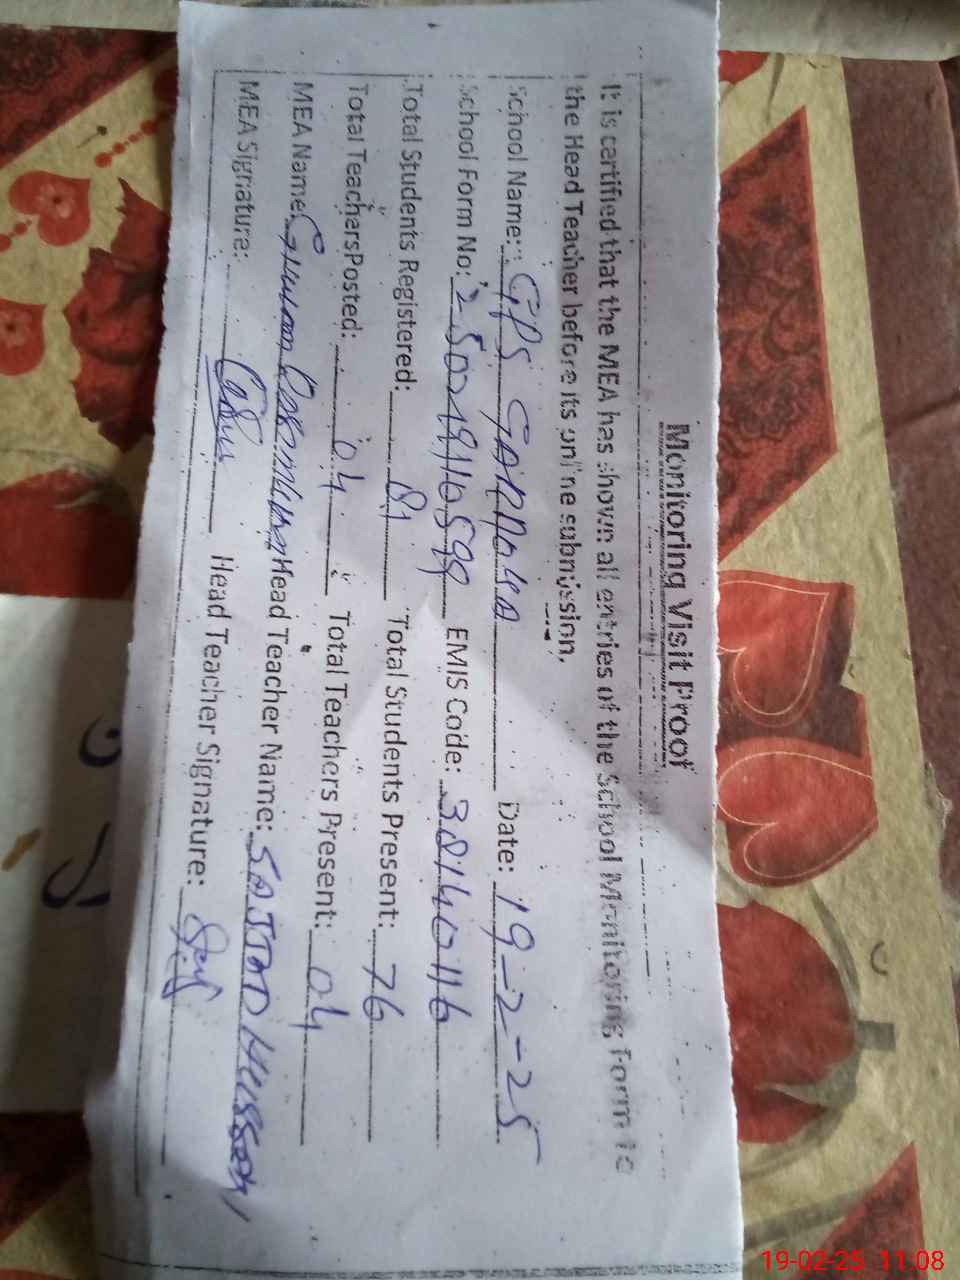 Monitoring Visit Proof
It is certified that the MEA has shown all entries of the School Monitoring Form to
the Head Teacher before its online submission.
School Name: GPS GARDOKA Date: 19-2-25
School Form No: 2502191 EMIS Code: 38140116
Total Students Registered: 81 Total Students Present: 76
Total Teachers Posted: 04 Total Teachers Present: 04
MEA Name: Head Teacher Name: SAJJAD HUSSAIN
MEA Signature: Head Teacher Signature:
19-02-25 11:08